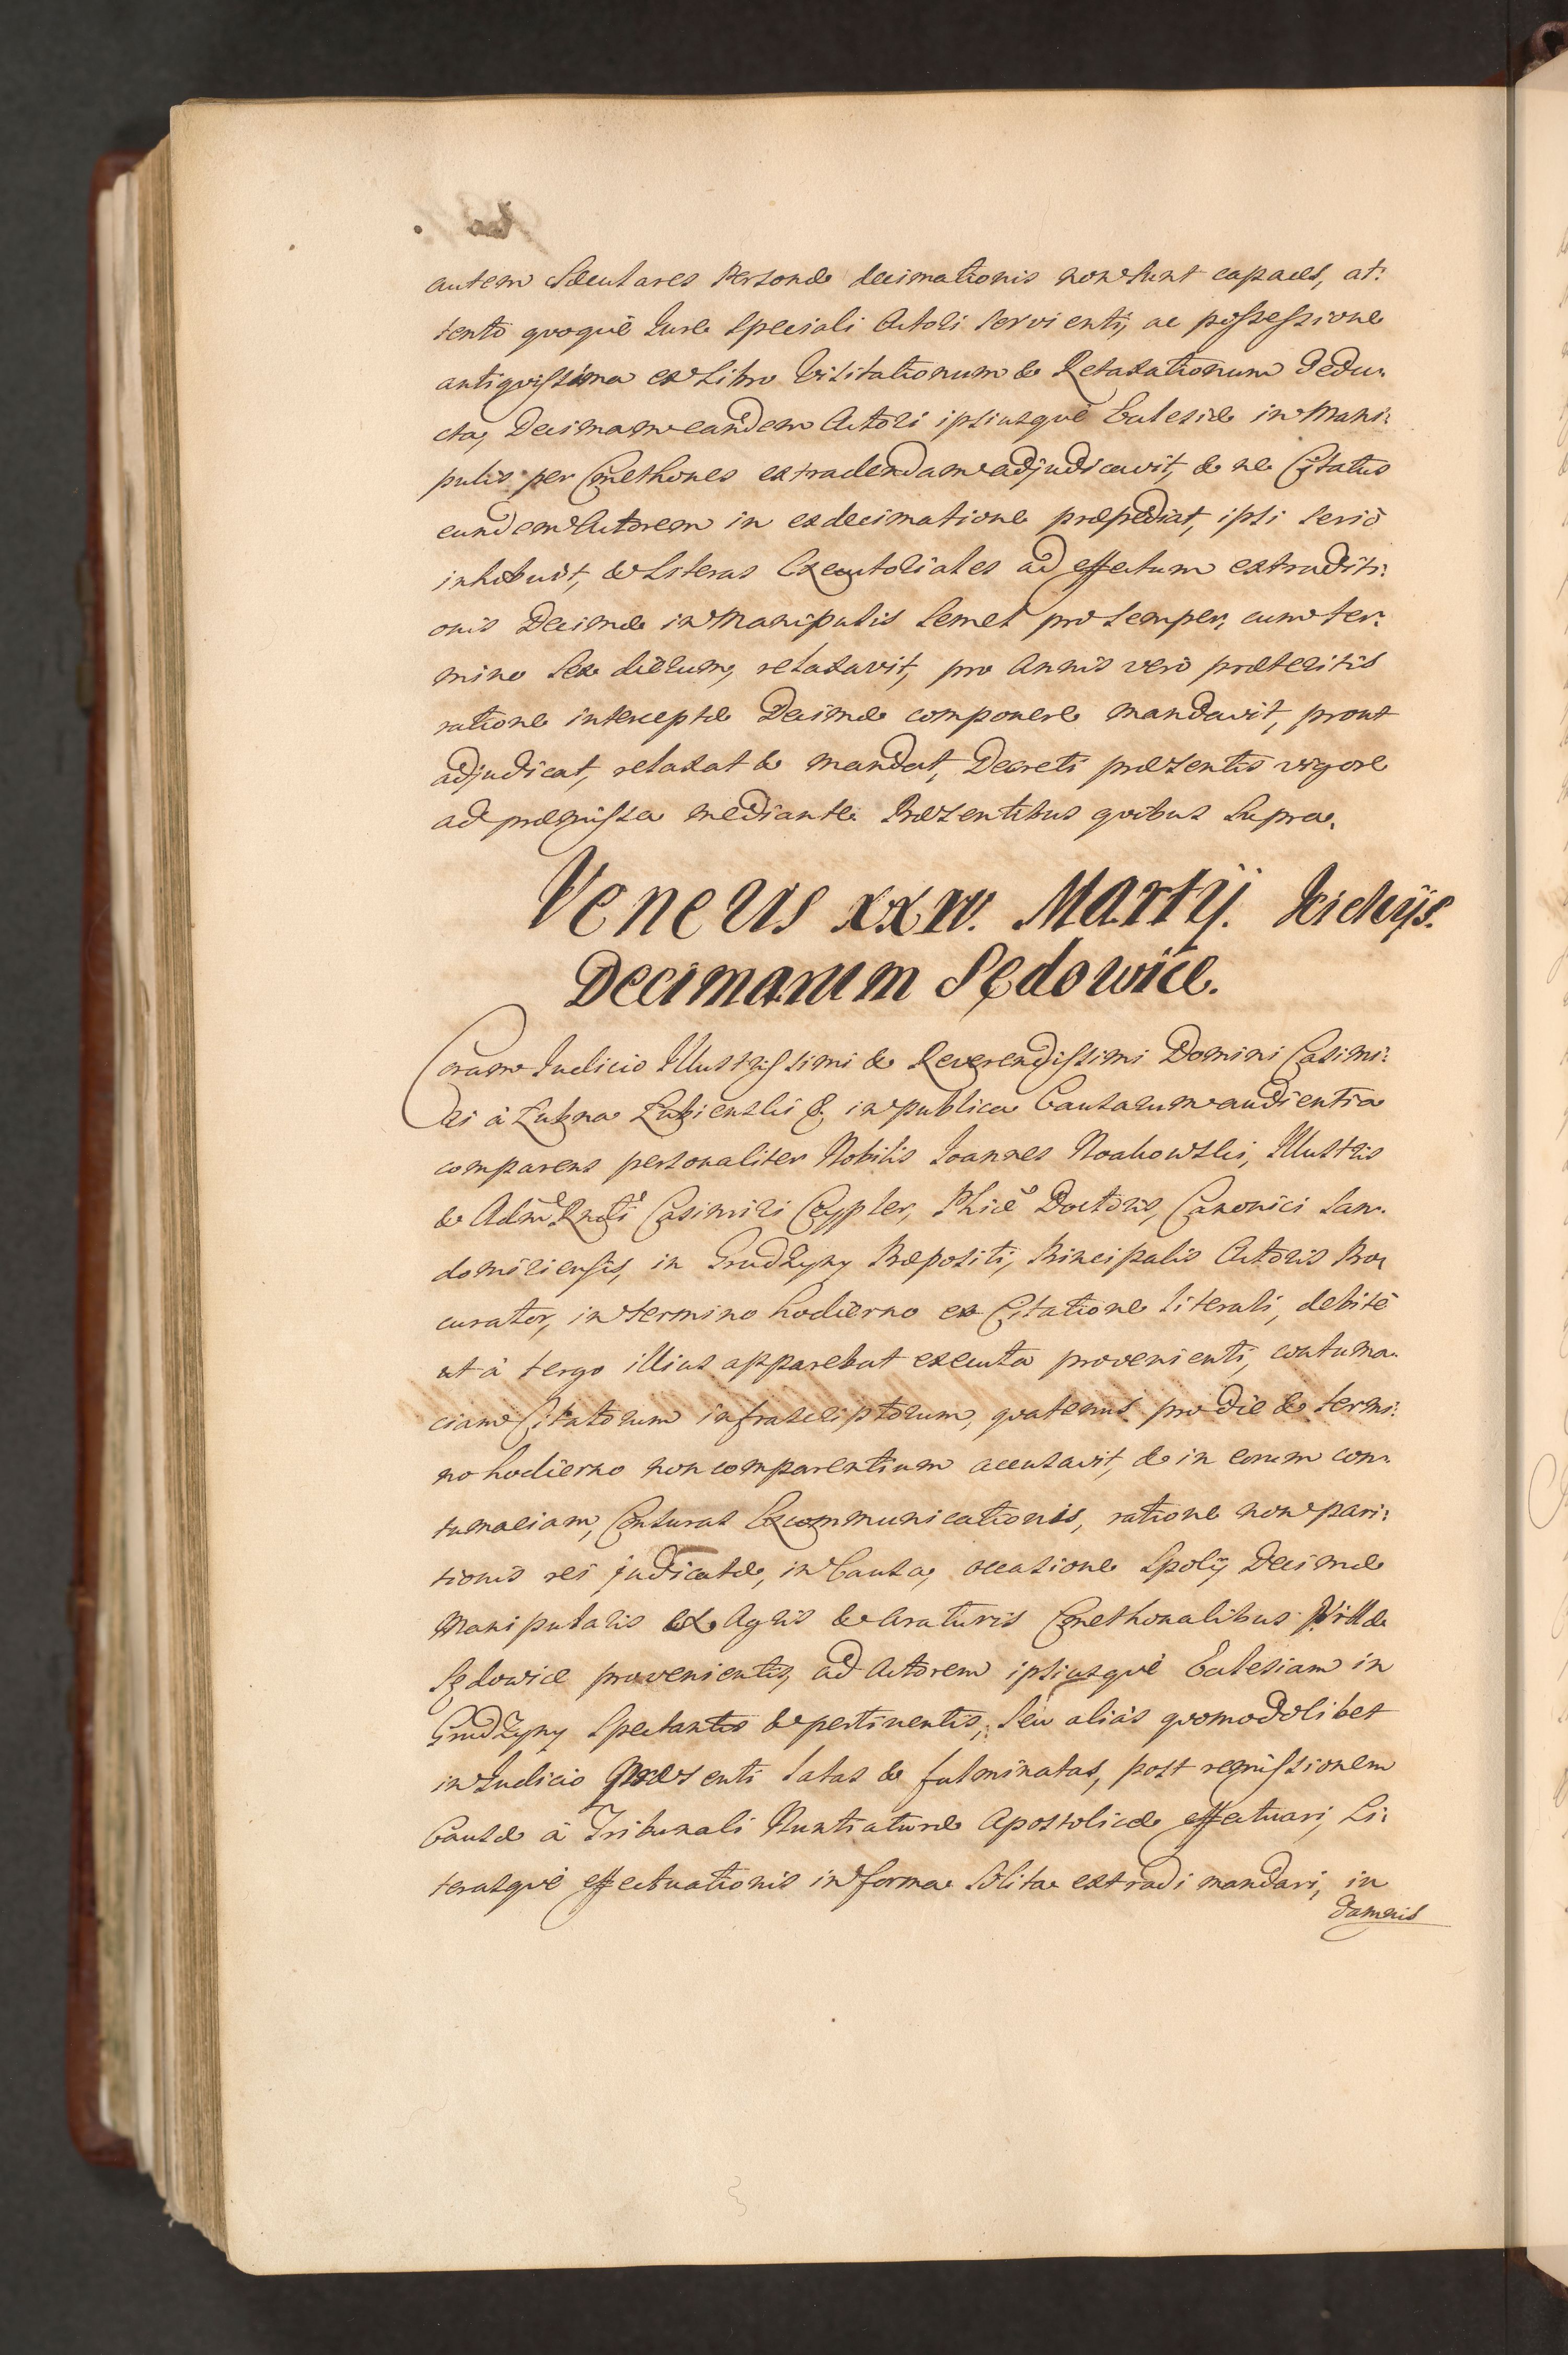 autem Sæculares Personæ decimationis non sunt capaces, at:
tento quoquè Iure Speciali Actori servienti, ac possessione
antiquissima ex Libro Visitationum & Retaxationum dedu:
cta, Decimam eandem Actori ipsiusquè Ecclesiæ in Mani:
pulis per Cmethones extradendam adjudicavit, & ne Citatus
eundem Actorem in exdecimatione præpediat, ipsi seriò
inhibuit, & Literas Executoriales ad effectum extraditi:
onis Decimæ in Manipulis semel pro semper, cum ter:
mino sex dierum, relaxavit, pro Annis verò præteritis
ratione interceptæ Decimæ componere mandavit, prout
adjudicat, relaxat & mandat, Decreti præsentis vigore
ad præmissa mediante. Præsentibus quibus supra.
Veneris XXIV. Martij. Kielcijs.
Decimarum Sędowice.
Coram Iudicio Illustrissimi & Reverendissimi Domini Casimi:
ri à Łubna Łubienski & in publica Causarum audientia
comparens personaliter Nobilis Ioannes Noakowski, Illustris
& Adm Rndi Casimiri Cyppler, Phiæ Doctoris, Canonici San:
domiriensis, in Grudzyny Præpositi, Principalis Actoris Pro:
curator, in termino hodierno ex Citatione literali, debitè
ut à tergo illius apparebat executa provenienti, contuma:
ciam Citatorum infrascriptorum, quatenus pro die & termi:
no hodierno non comparentium accusavit, & in eorum con:
tumaciam, Censuras Excommunicationis, ratione non pari:
tionis rei judicatæ, in Causa, occasione Spolij Decimæ
Manipularis ex Agris & Araturis Cmethonalibus Villæ
Sędowice provenientis, ad Actorem ipsiusquè Ecclesiam in
Grudzyny Spectantis & pertinentis, seu aliàs quomodolibet
in Iudicio Præsenti latas & fulminatas, post remissionem
Causæ à Tribunali Nuntiaturæ Apostolicæ effectuari, Li:
terasquè effectuationis in forma solita extradi mandari, in
damnis